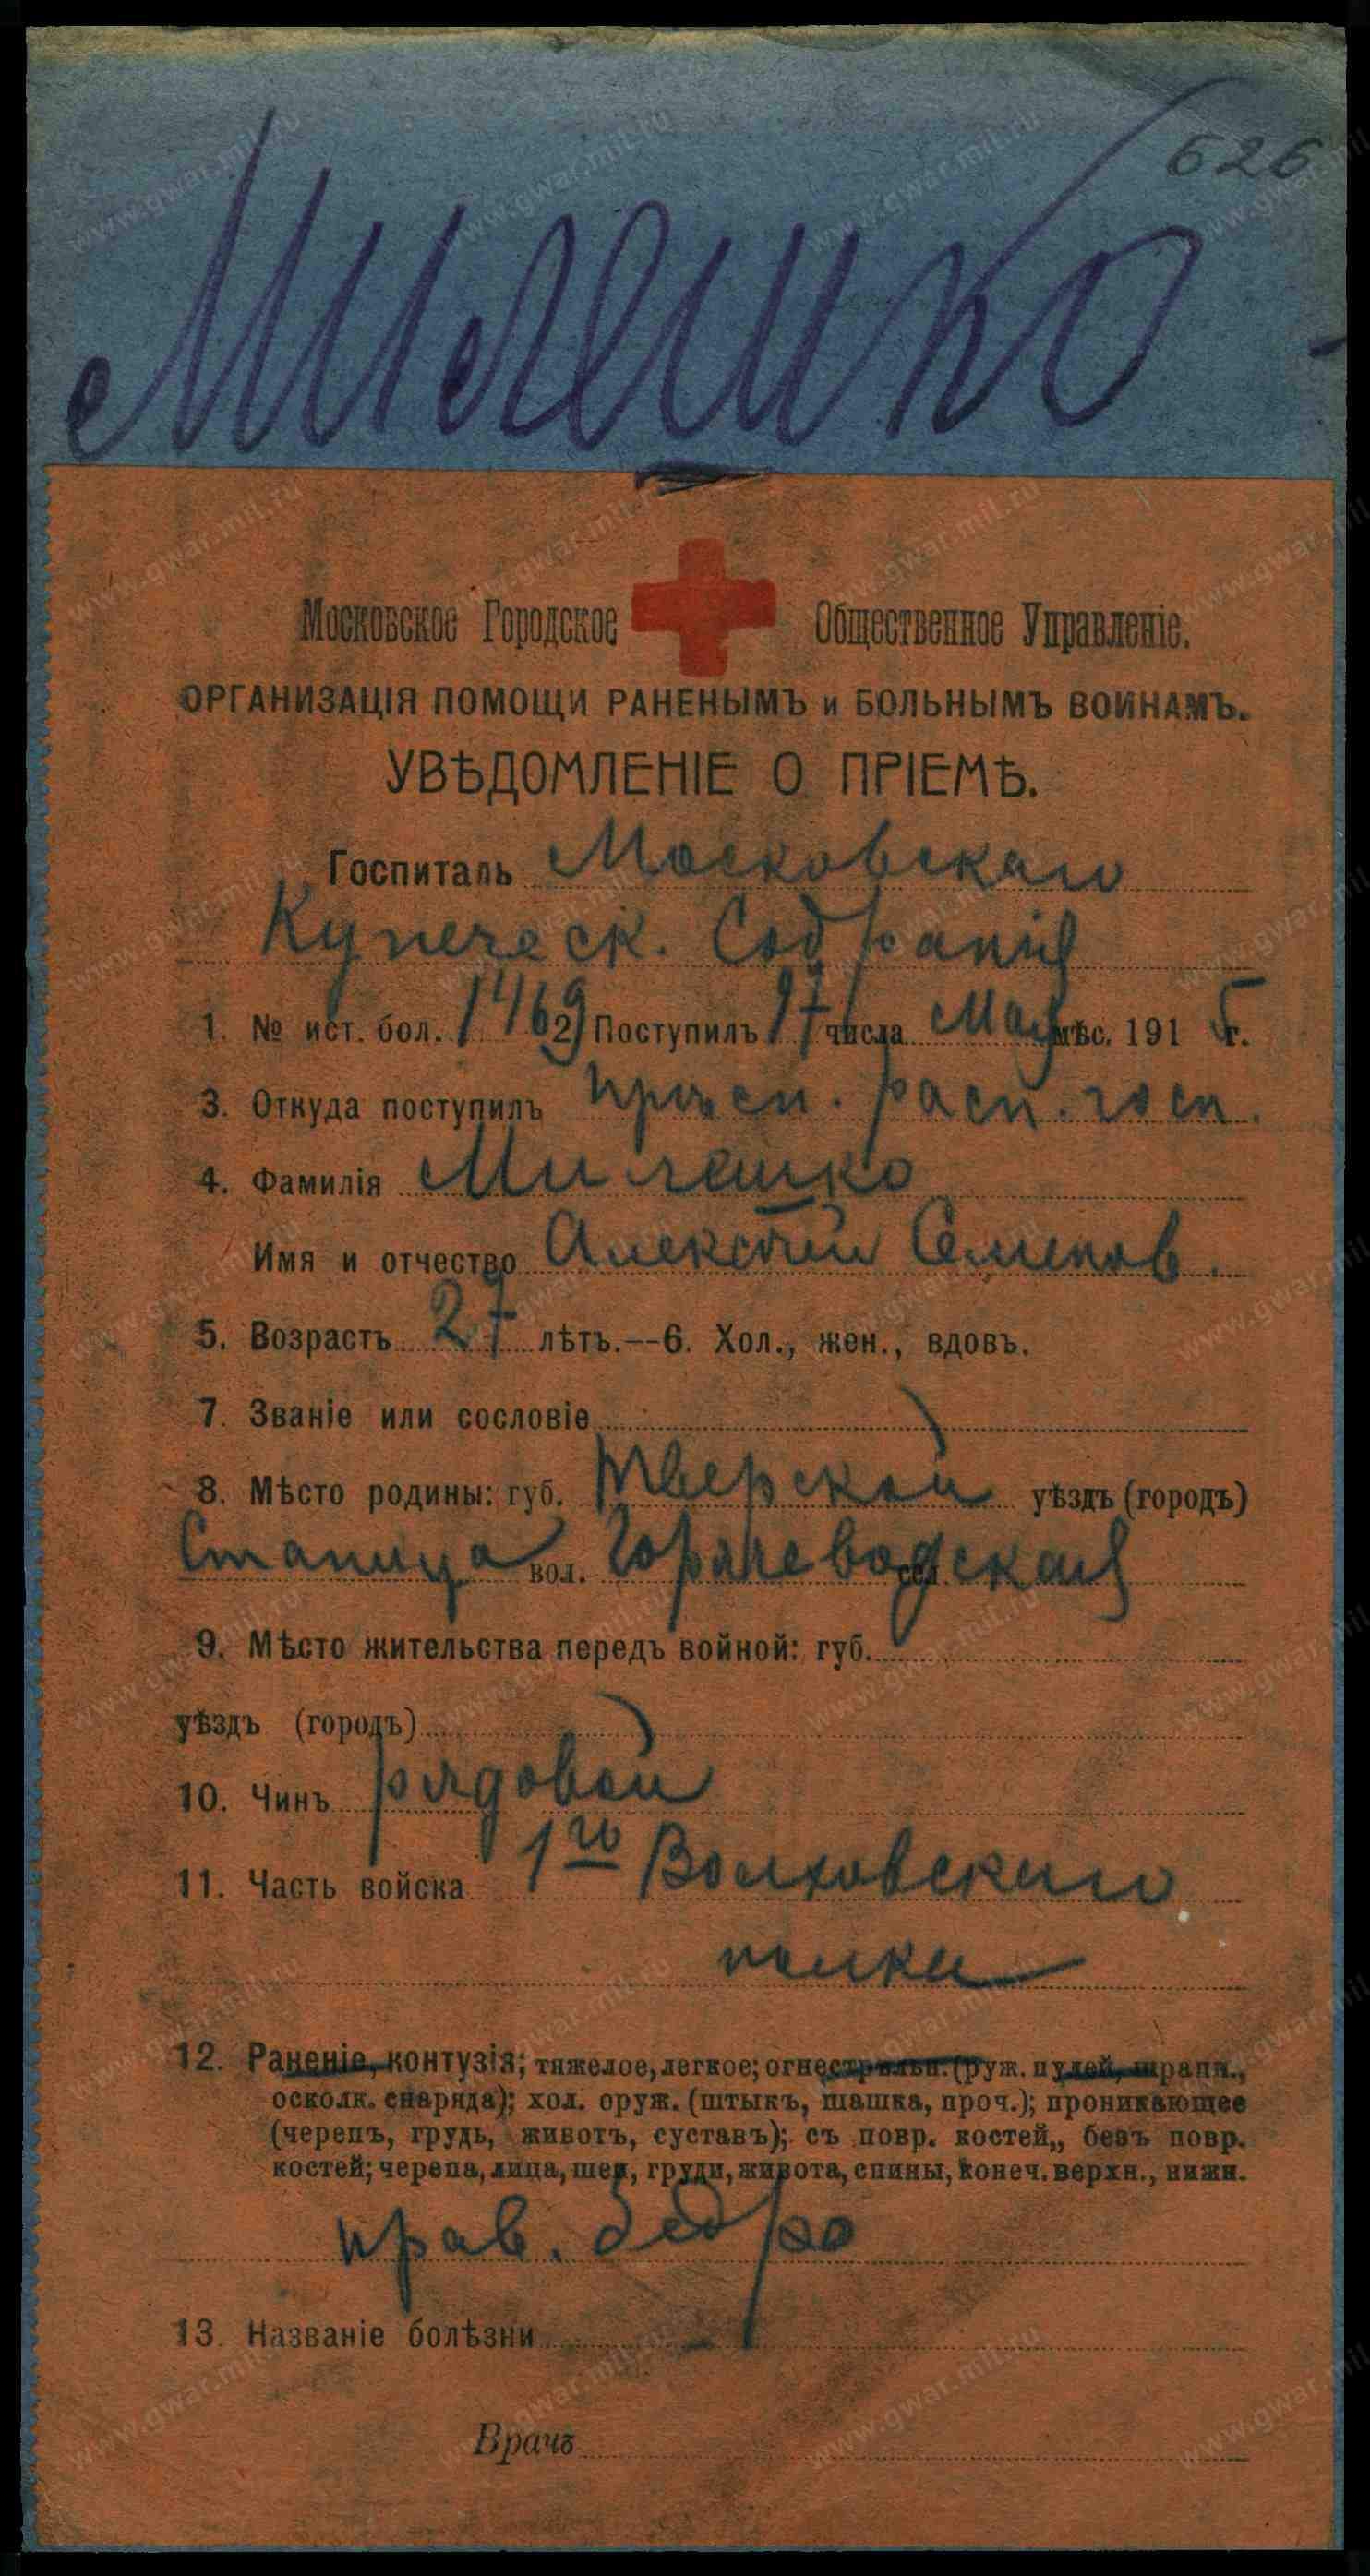 626
Милешко
Московское Городское Общественное Управленіе.
ОРГАНИЗАЦІЯ ПОМОЩИ РАНЕНЫМЪ и БОЛЬНЫМЪ ВОИНАМЪ.
УВѢДОМЛЕНІЕ О ПРІЕМѢ.
Госпиталь Московскаго
Купеческ. Собранія
1. № ист. бол. 1469 2) Поступилъ 17 числа Мая мѣс. 1915 г.
3. Откуда поступилъ расп. госп.
4. Фамилія Милешко
Имя и отчество Алексѣй Семенов.
5. Возрастъ 27 лѣтъ.--6. Хол., жен., вдовъ.
7. Званіе или сословіе
8. Мѣсто родины: губ. Тверской уѣздъ (городъ)
Станица вол. Горячеводская
9. Мѣсто жительства передъ войной: губ.
уѣздъ (городъ)
10. Чинъ рядовой
11. Часть войска 1го Волховскаго
полка
12. Раненіе, контузія; тяжелое, легкое; огнестрѣльн. (руж. пулей, шрапн.,
осколк. снаряда); хол. оруж. (штыкъ, шашка, проч.); проникающее
(черепъ, грудь, животъ, суставъ); съ повр. костей,, безъ повр.
костей; черепа, лица, шеи, груди, живота, спины, конеч. верхн., нижн.
прав. бедро
13. Названіе болѣзни
Врачъ
www.gwar.mil.ru